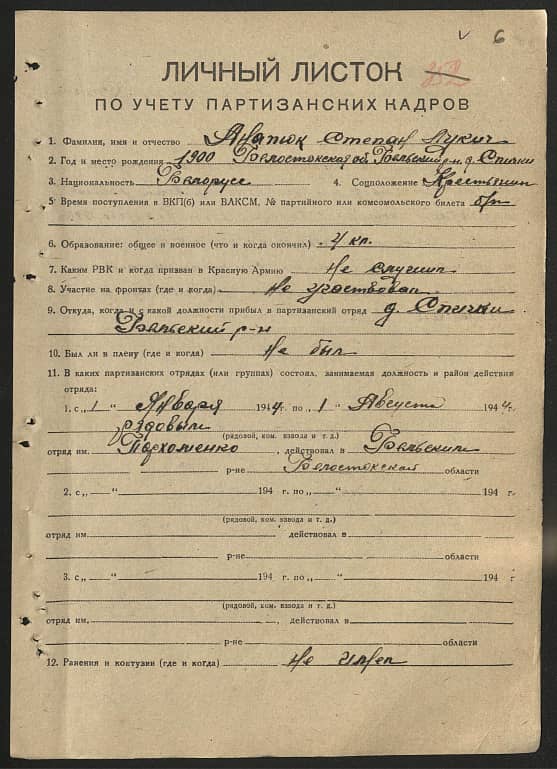 v 6
ЛИЧНЫЙ ЛИСТОК 252
ПО УЧЕТУ ПАРТИЗАНСКИХ КАДРОВ
1. Фамилия, имя и отчество Анатюк Степан Лукич
2. Год и место рождения 1900 Белостокская об. Бельский р-н. д. Спички
3. Национальность Белорусс 4. Соцположение Крестьянин
5. Время поступления в ВКП(б) или ВЛКСМ, № партийного или комсомольского билета б/п
6. Образование: общее и военное (что и когда окончил) 4 кл.
7. Каким РВК и когда призван в Красную Армию Не служил
8. Участие на фронтах (где и когда) Не участвовал
9. Откуда, когда и с какой должности прибыл в партизанский отряд д. Спички
Бельский р-н
10. Был ли в плену (где и когда) Не был
11. В каких партизанских отрядах (или группах) состоял, занимаемая должность и район действия
отряда:
1. с „1" Января 1944 г. по „1" Августа 1944 г.
рядовым
(рядовой, ком. взвода и т. д.)
отряд им. Пархоменко, действовал в Бельским
р-не Белостокской области
2. с „ " 194 г. по „ " 194 г.
(рядовой, ком. взвода и т. д.)
отряд им. действовал в
р-не области
3. с „ " 194 г. по „ " 194 г.
(рядовой, ком. взвода и т. д.)
отряд им. , действовал в
р-не области
12. Ранения и контузии (где и когда) не имел